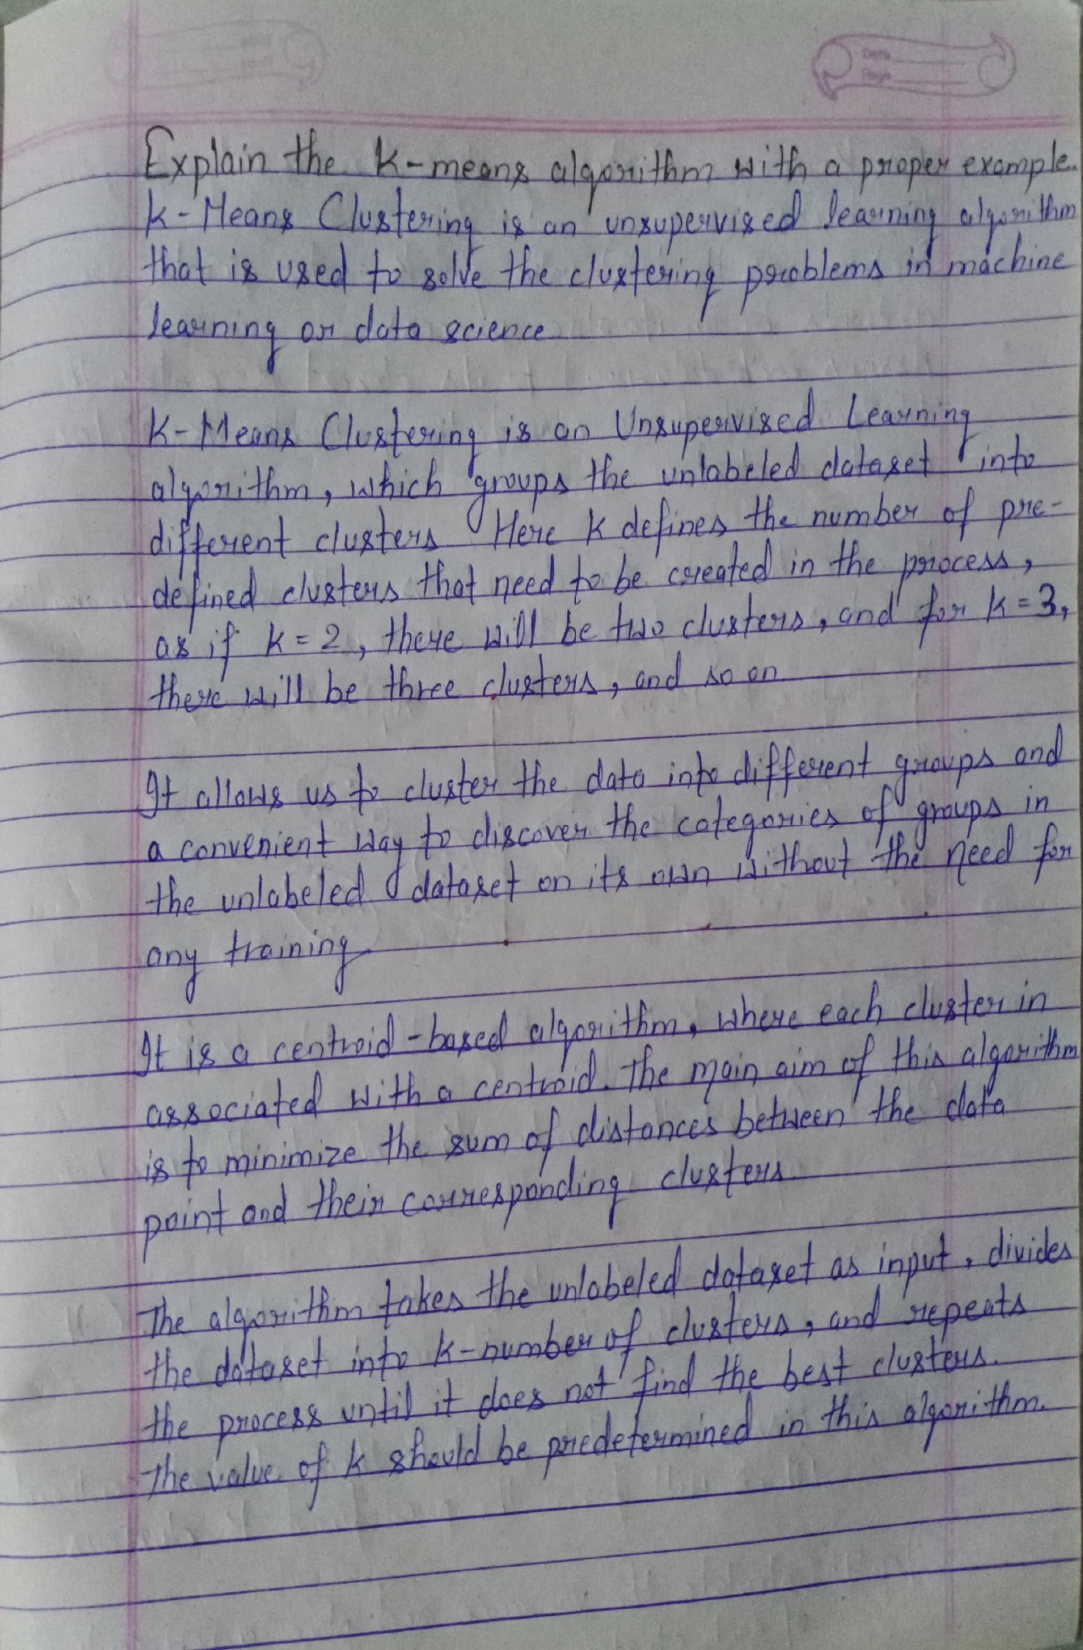 Date
Page
Explain the K-means algorithm with a proper example.
K-Means Clustering is an unsupervised learning algorithm
that is used to solve the clustering problems in machine
learning or data science
K-Means Clustering is an Unsupervised Learning
algorithm, which groups the unlabeled dataset into
different clusters Here K defines the number of pre-
defined clusters that need to be created in the process,
as if K = 2, there will be two clusters, and for K = 3,
there will be three clusters, and so on
It allows us to cluster the data into different groups and
a convenient way to discover the categories of groups in
the unlabeled dataset on its own without the need for
any training
It is a centroid-based algorithm, where each cluster in
associated with a centroid. The main aim of this algorithm
is to minimize the sum of distances between the data
point and their corresponding clusters.
The algorithm takes the unlabeled dataset as input, divides
the dataset into K-number of clusters, and repeats
the process until it does not find the best clusters.
The value of K should be predetermined in this algorithm.